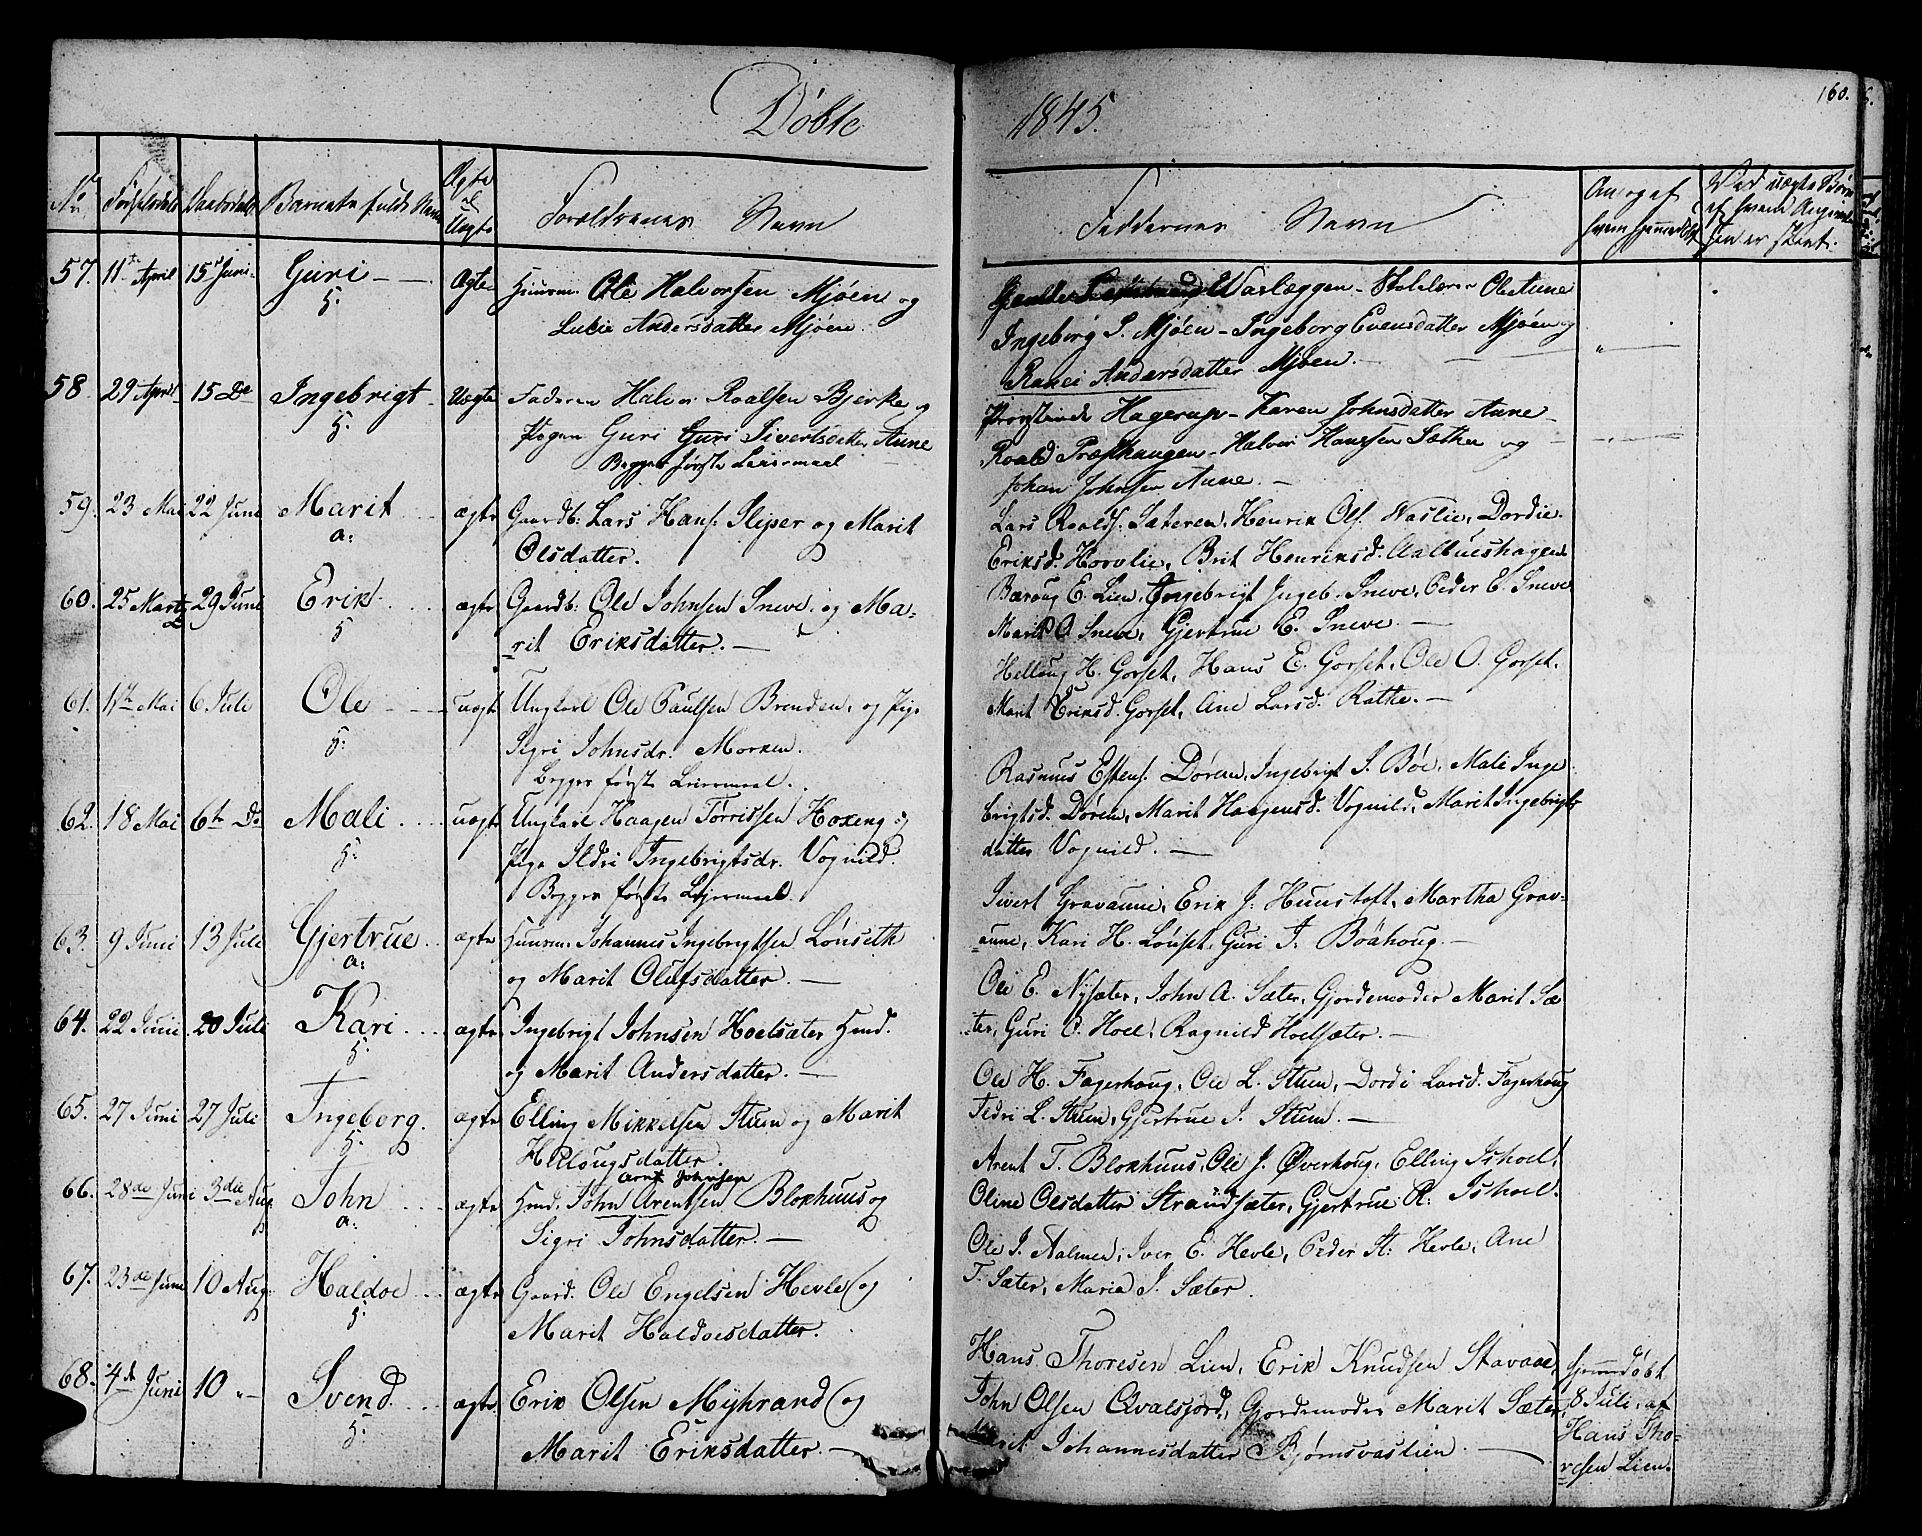 Døbte 1845.
160.
No Fødselsdato Daabsdato Barnets fulde Navn Ægte el Uægte Forældrenes Navn Faddernes Navn
Om og af hvem hjemmedøbt
Ved uægte Børn af hvem Angivelsen er skeet.
57. 11te April 15de Juni Guri Ægte Huusm. Ole Halvorsen Mjøen og
5.
Lucie Andersdatter Mjøen.
Waslæggen - Skolelærer Ole Aune
Ingeborg S. Mjøen - Ingeborg Evensdatter Mjøen og
Ranei Andersdatter Mjøen.
58. 29 April 15 Do Ingebrigt Uægte Faderen Halvor Roalsen Bjerke og
5.
Pigen Guri Guri Sivertsdatter Aune
Begges første Leiermaal
Provstinde Hagerup - Karen Johnsdatter Aune -
Roald Præsthaugen - Halvor Hanssen Sæther og
Johan Johnsen Aune. -
59. 23 Mai 22 Juni Marit ægte Gaardb: Lars Hans. Sliper og Marit
a.
Olsdatter.
Lars Roalds. Sæteren, Henrik Ols. Waslie, Dordie
Eriksd. Horvlie, Brit Henriksd. Aalbueshagen
60. 25 Martz 29 Juni Erik ægte Gaardb: Ole Johnsen Sneve, og Ma-
5
rit Eriksdatter. -
Baroug E. Lien, Ingebrigt Ingeb. Sneve, Peder E. Sneve
Marit O. Sneve, Gjertrue E. Sneve. -
61. 1ste Mai 6 Juli Ole uægte Ungkarl Ole Paulsen Brenden, og Pige
5.
Sigri Johnsdr. Morken.
Begges første Leiermaal.
Helloug H. Gorset, Hans E. Gorset, Ole O. Gorset,
Marit Eriksd. Gorset, Ane Larsd. Rathe. -
62. 18 Mai 6te Do Mali uægte Ungkarl Haagen Tørrissen Hoxeng og
5.
Pige Ildri Ingebrigtsdr. Vognild.
Begges første Lejermaal.
Rasmus Estens. Døren, Ingebrigt S. Bøe, Mali Inge
brigtsd. Døren, Marit Haagensd. Vognild, Marit Ingebrigts
datter Vognild. -
63. 9 Juni 13 Juli Gjertrue ægte Huusm. Johannes Ingebrigtsen Lønseth
a.
og Marit Olufsdatter. -
Sivert Gravaune, Erik J: Huustoft, Martha Grav-
aune, Kari H. Lønset, Guri I. Böähoug. -
64. 22 Juni 20 Juli Kari ægte Ingebrigt Johnsen Hoelsæter Hmd.
5.
og Marit Andersdatter. -
Ole E. Nysæter, John A. Sæter, Gjordemoder Marit Sæ-
ter, Guri O. Hoel, Ragnild Hoelsæter. -
65. 27 Juni 27 Juli Ingeborg. ægte Elling Mikkelsen Stuen og Marit
5.
Hellougsdatter.
Ole H. Fagerhoug, Ole L. Stuen, Dordi Larsd. Fagerhoug
Ildri L. Stuen, Gjertrue I. Stuen. -
66. 28de Juni 3die Aug. John ægte Hmd. John Arentsen Bloxhuus og
Arnt Johnsen
a.
Sigri Johnsdatter. -
Arent T. Bloxhuus, Ole J. Øverhoug, Elling Ishoel,
Oline Olsdatter Strandsæter, Gjertrue R. Ishoel.
67. 23de Juni 10 Aug. Haldoe ægte Gaard. Ole Engelsen Hevle og
5.
Marit Haldoesdatter.
Ole I. Aalmen, Iver E. Hevle, Peder St. Hevle, Ane
T. Sæter, Marie J. Sæter.
68. 4de Juni 10 „- Svend ægte Erik Olsen Myhrand og
5.
Marit Eriksdatter. -
Hans Thoresen Lien, Erik Knudsen Stavaae,
John Olsen Qvalsjord, Gjordemoder Marit Sæter,
Johannesdatter Bjørnsvaslien
Hjemmdøbt
8 Juli, af
Hans Tho-
resen Lien.